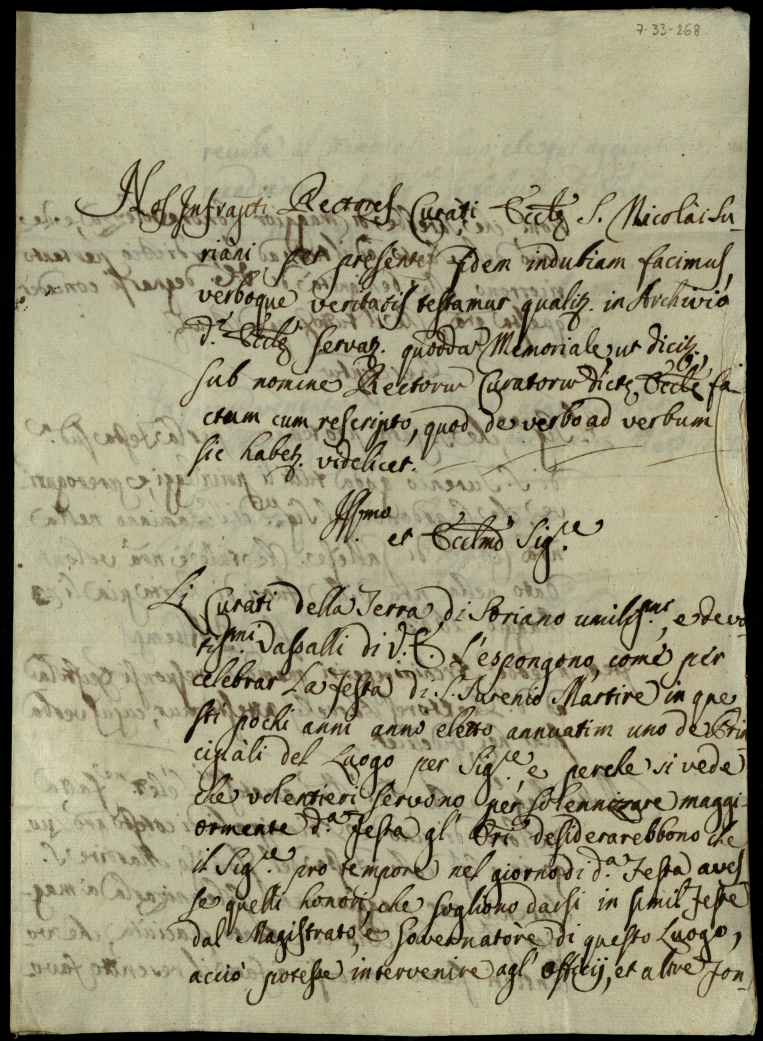 7-33-268
Nos Infrascti Rectores Curati Eccle S. Nicolai Su-
riani per presente fidem indubiam facimus,
verboque veritatis testamur qualiz. in Archivio
d.e Eccle servaz. quodda Memoriale ut diciz.
sub nomine Rectoru Curatoru dicte Eccle fa-
ctum cum rescripto, quod de verbo ad verbum
sic habez. videlicet.
Illmo
et Eccllmo Sig.re
Li Curati della Terra di Soriano umiliss.mi, e devo-
tiss.mi Vassalli di V. E. l'espongono, come per
celebrar La festa di S. Iuvenio Martire in que
sti pochi anni anno eletto annuatim uno de Prin
cipali del Luogo per Sig.re e perche si vede
che volentieri servono per solennizzare maggi-
ormente d.a Festa gl' Ori desiderarebbono che
il Sig.re pro tempore nel giorno di d.a Festa aves
se quelli honori, che sogliono darsi in simil Feste
dal Magistrato, e Governatore di questo Luogo,
acciò potesse intervenire agl' officij, et altre fon-